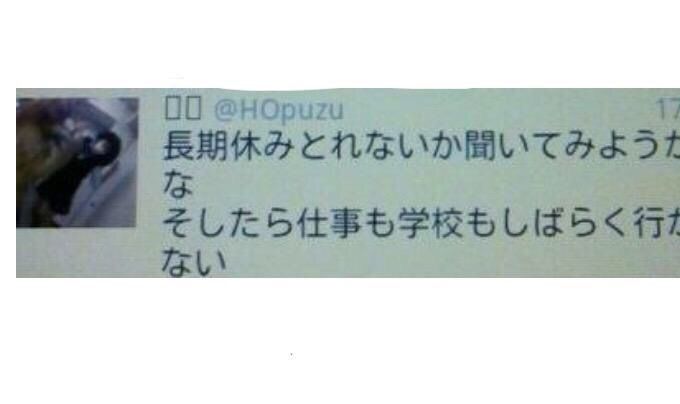 @HOpuzu 17
長期休みとれないか聞いてみようか
な
そしたら仕事も学校もしばらく行か
ない